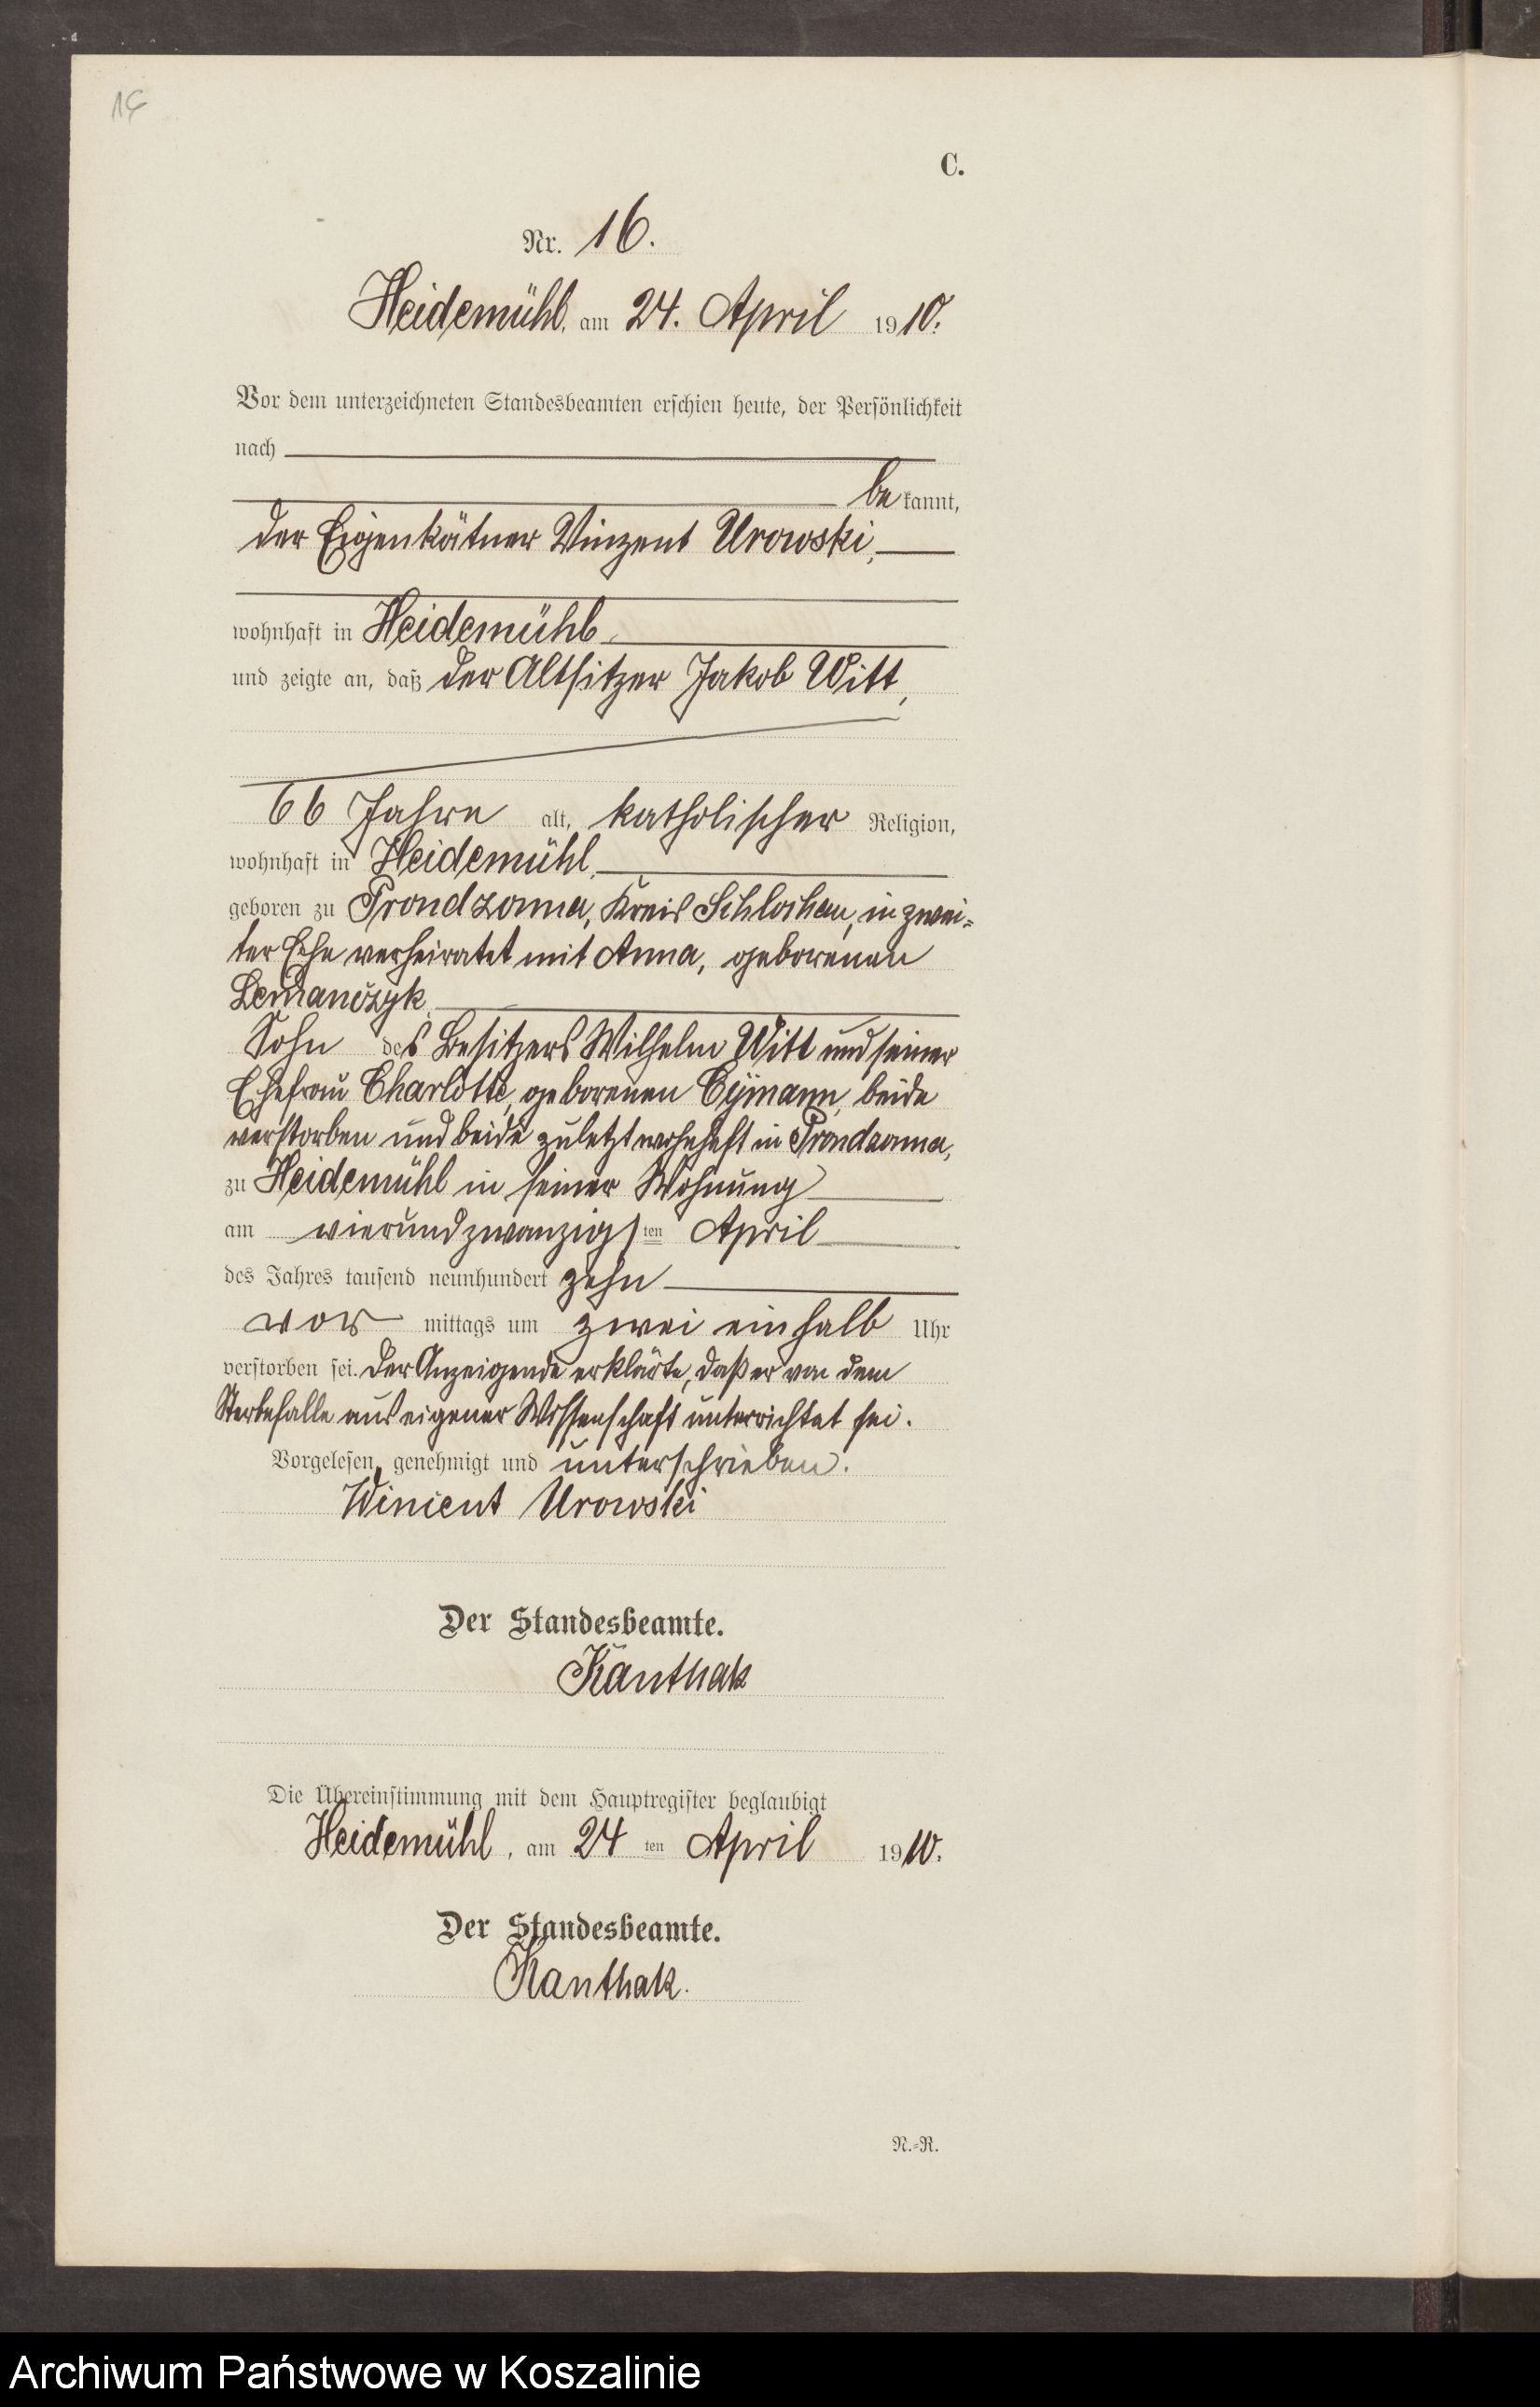 16
C.
Nr. 16.
Heidemühl, am 24. April 1910.
Vor dem unterzeichneten Standesbeamten erschien heute, der Persönlichkeit
nach
bekannt,
der Eigenkätner Vinzent Urowski,
wohnhaft in Heidemühl
und zeigte an, daß der Altsitzer Jakob Witt,
66 Jahre alt, katholischer Religion,
wohnhaft in Heidemühl,
geboren zu Prondzonna, Kreis Schlochau, in zwei-
ter Ehe verheiratet mit Anna, geborenen
Lemanczyk,
Sohn des Besitzers Wilhelm Witt und seiner
Ehefrau Charlotte, geborenen beide
verstorben und beide zuletzt wohnhaft in Prondzonna,
zu Heidemühl in seiner Wohnung
am vierundzwanzigsten April
des Jahres tausend neunhundert zehn
vor mittags um zwei einhalb Uhr
verstorben sei. Der Anzeigende erklärte, daß er von dem
Sterbefalle aus eigener Wissenschaft unterrichtet sei.
Vorgelesen, genehmigt und unterschrieben.
Winient Urowski
Der Standesbeamte.
Kanthak
Die Übereinstimmung mit dem Hauptregister beglaubigt
Heidemühl, am 24 ten April 1910.
Der Standesbeamte.
Kanthak.
N.-R.
Archiwum Państwowe w Koszalinie